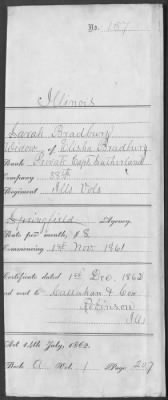 No. 157
Illinois
Sarah Bradbury
Widow of Elisha Bradbury
Rank Private Capt Sutherland
Company
Regiment Ills Vols
Springfield Agency.
Rate per month, $ 8
Commencing 1st Nov 1861
Certificate dated 1st Dec. 1862
and sent to Callahan & Cox
Robinson
Ills
Act 14th July, 1862.
Book A Vol. 1 Page 207